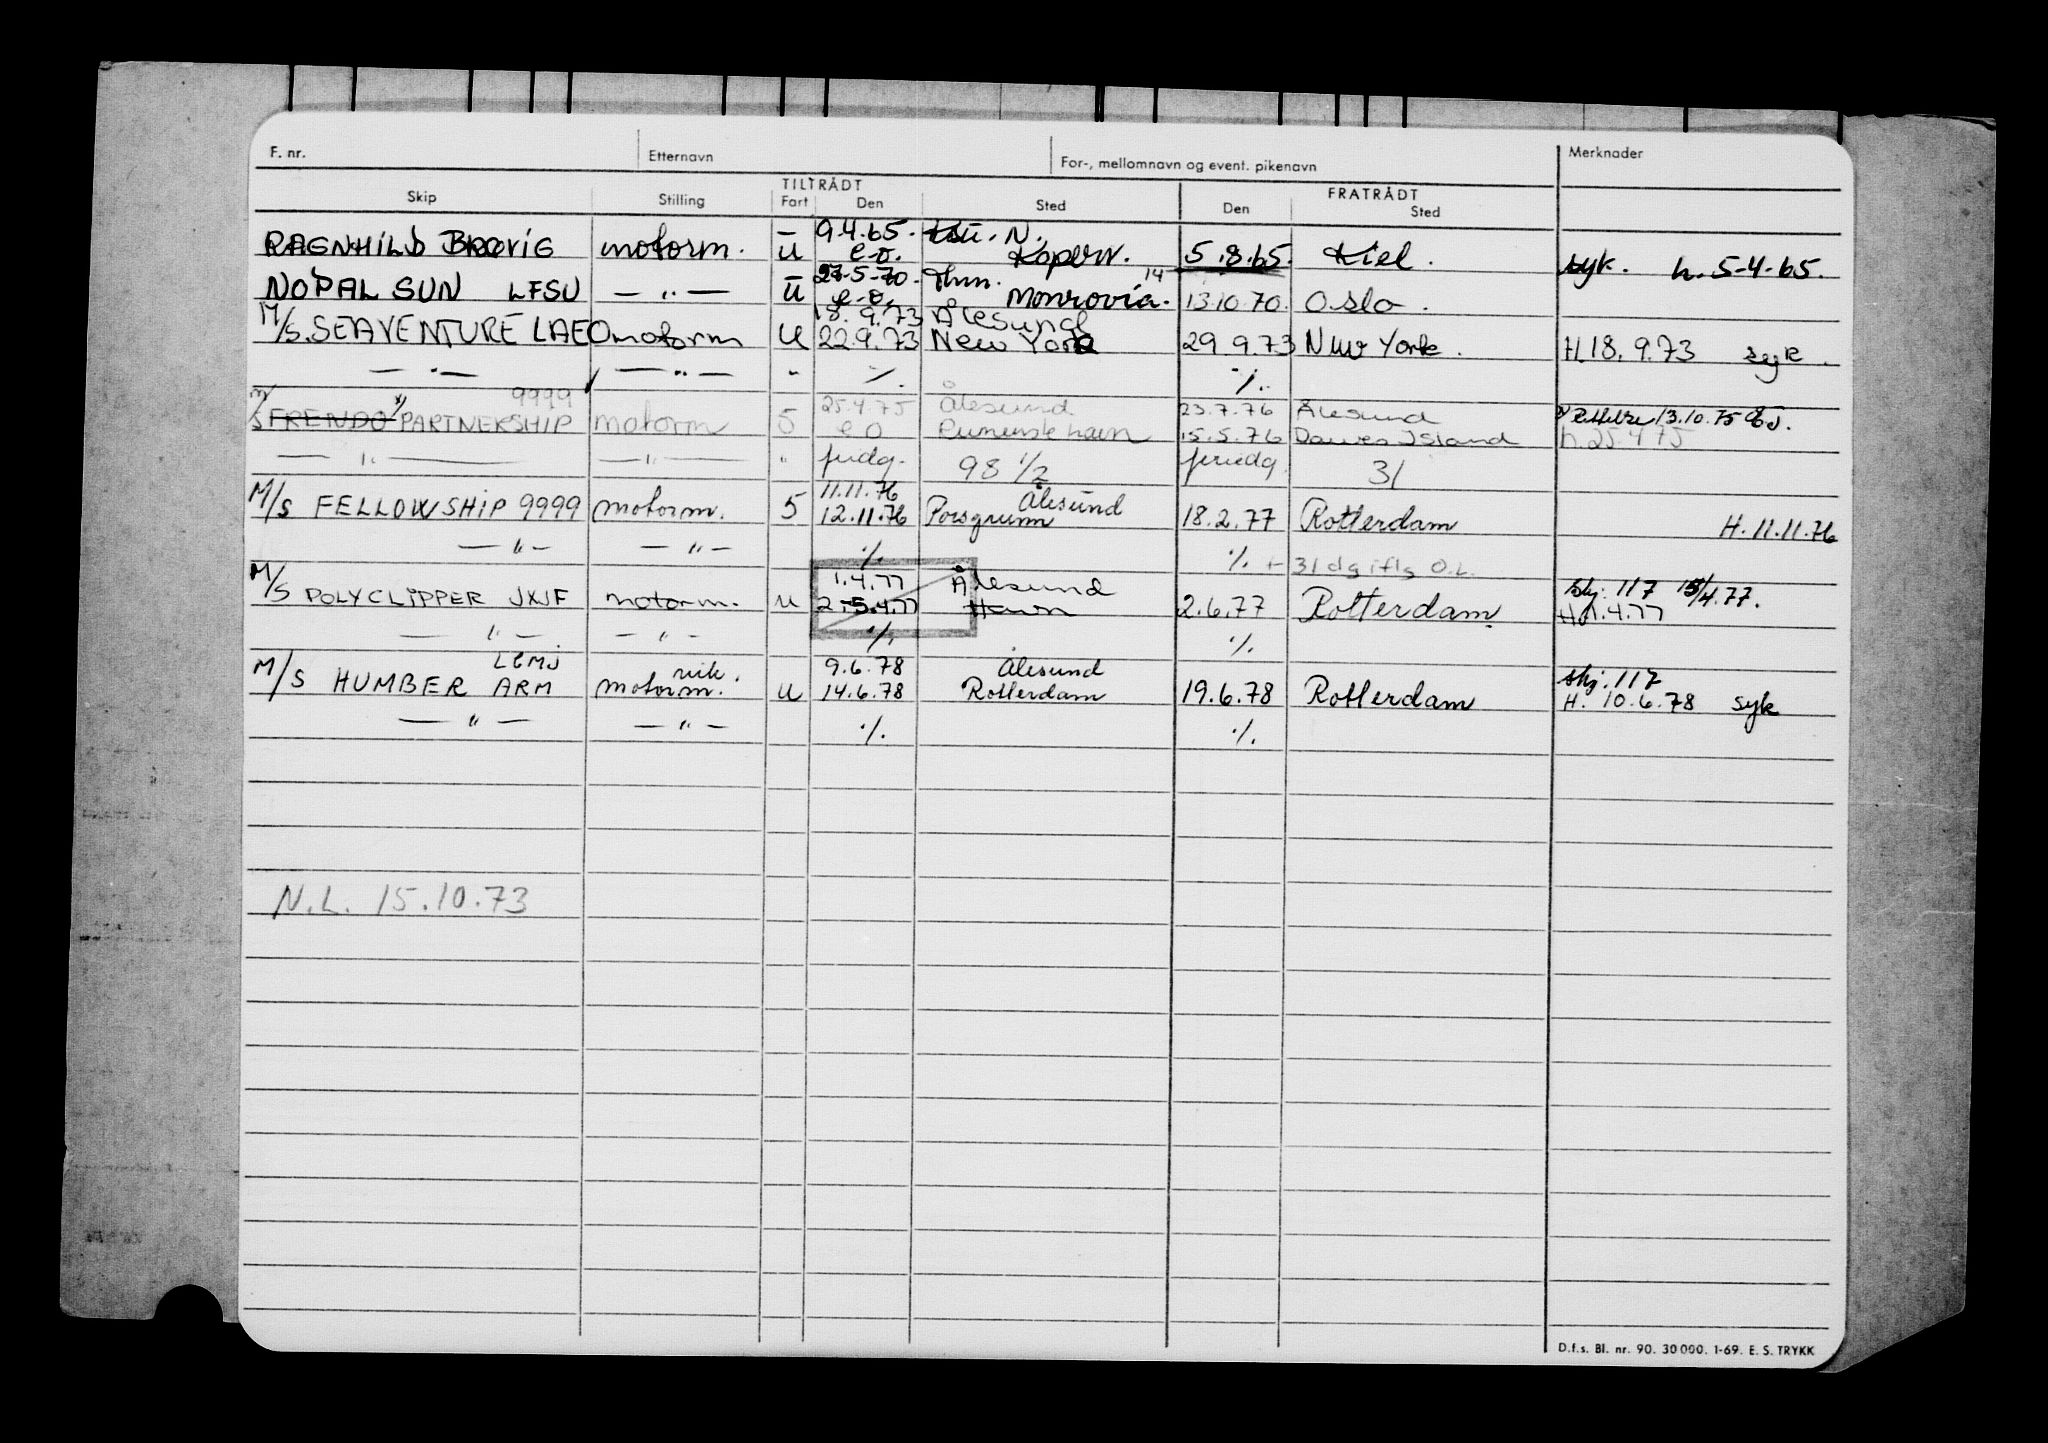 F. nr. Etternavn For-, mellomnavn og event. pikenavn Merknader
TILTRÅDT FRATRÅDT
Skip Stilling Fart Den Sted Den Sted
– 9.4.65. N.
RAGNHILD BRØVIG motorm. u e.o. Koperv. 5.8.65. Kiel. syk. h. 5-4-65.
27-5-70. Thm. 14
NOPAL SUN LFSU — " — U e.o. Monrovia. 13.10.70. Oslo.
18.9.73 Ålesund
M/S. SEAVENTURE LAEO motorm U 22.9.73 New York 29.9.73 New York. H 18.9.73 syk.
— " — — " — " ./. ./.
9999 25.4.75 Ålesund 23.7.76 Ålesund x) Rettelse 13.10.75
M/S FRENDO x) PARTNERSHIP motorm 5 e o 15.5.76 Dawes Island h. 25.4.75
— " — — " — " fridg. 98 1/2 feriedg. 31
11.11.76 Ålesund
M/S FELLOWSHIP 9999 motorm. 5 12.11.76 Porsgrunn 18.2.77 Rotterdam H. 11.11.76
— " — — " — ./. ./. + 31 dg iflg O.L.
1.4.77 Ålesund skj. 117 15/4.77.
M/S POLYCLIPPER JXJF motorm. u 2-5.4.77 Havn 2.6.77 Rotterdam. H 1.4.77
— " — — " — ./. ./.
LEMJ vik. 9.6.78 Ålesund skj. 117
M/S HUMBER ARM motorm. u 14.6.78 Rotterdam 19.6.78 Rotterdam H. 10.6.78 syk
— " — — " — ./. ./.
N.L. 15.10.73
D.f.s. Bl. nr. 90. 30 000. 1-69. E. S. TRYKK